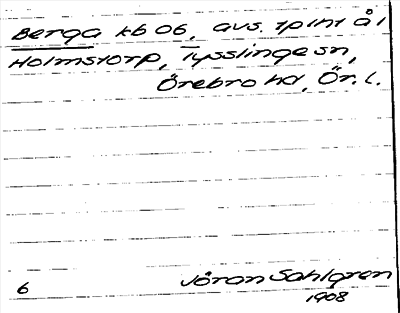 Berga kb 06, avs. tp int å l
Holmstorp, Tysslinge sn,
Örebro hd, Ör. l.
Jöran Sahlgren
6
1908